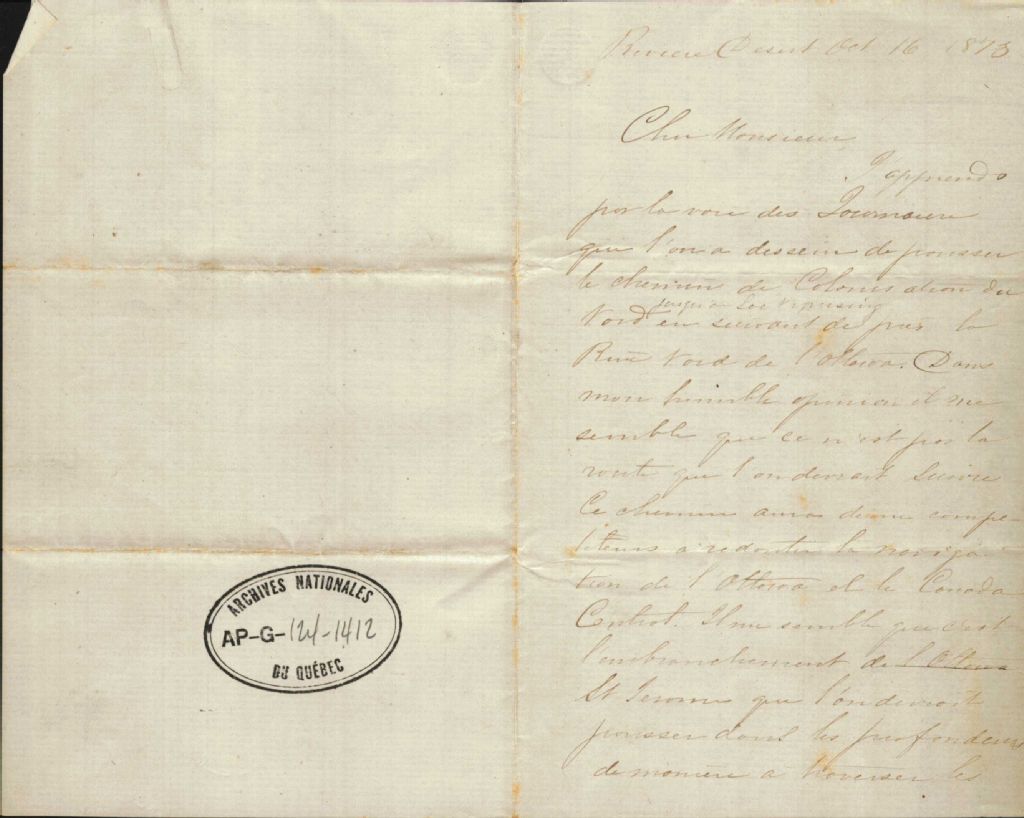 ARCHIVES NATIONALES
AP-G-124-1412
DU QUÉBEC
Riviere Desert Oct 16 1873
Cher Monsieur
J'apprends
par la voie des Journaux
que l'on a dessein de pousser
le chemin de Colonisation du
jusqu'au Lac Nipissing
Nord en suivant de près la
Rive Nord de l'Ottawa. Dans
mon humble opinion il me
semble que ce n'est pas la
route que l'on devrait suivre
Ce chemin aura deux compe-
titeurs a redouter la naviga-
tion de l'Ottawa et le Canada
Central. Il me semble que c'est
l'embranchement de l'Ottawa
St Jerome que l'on devrait
pousser dans les profondeurs
de manière a traverser les